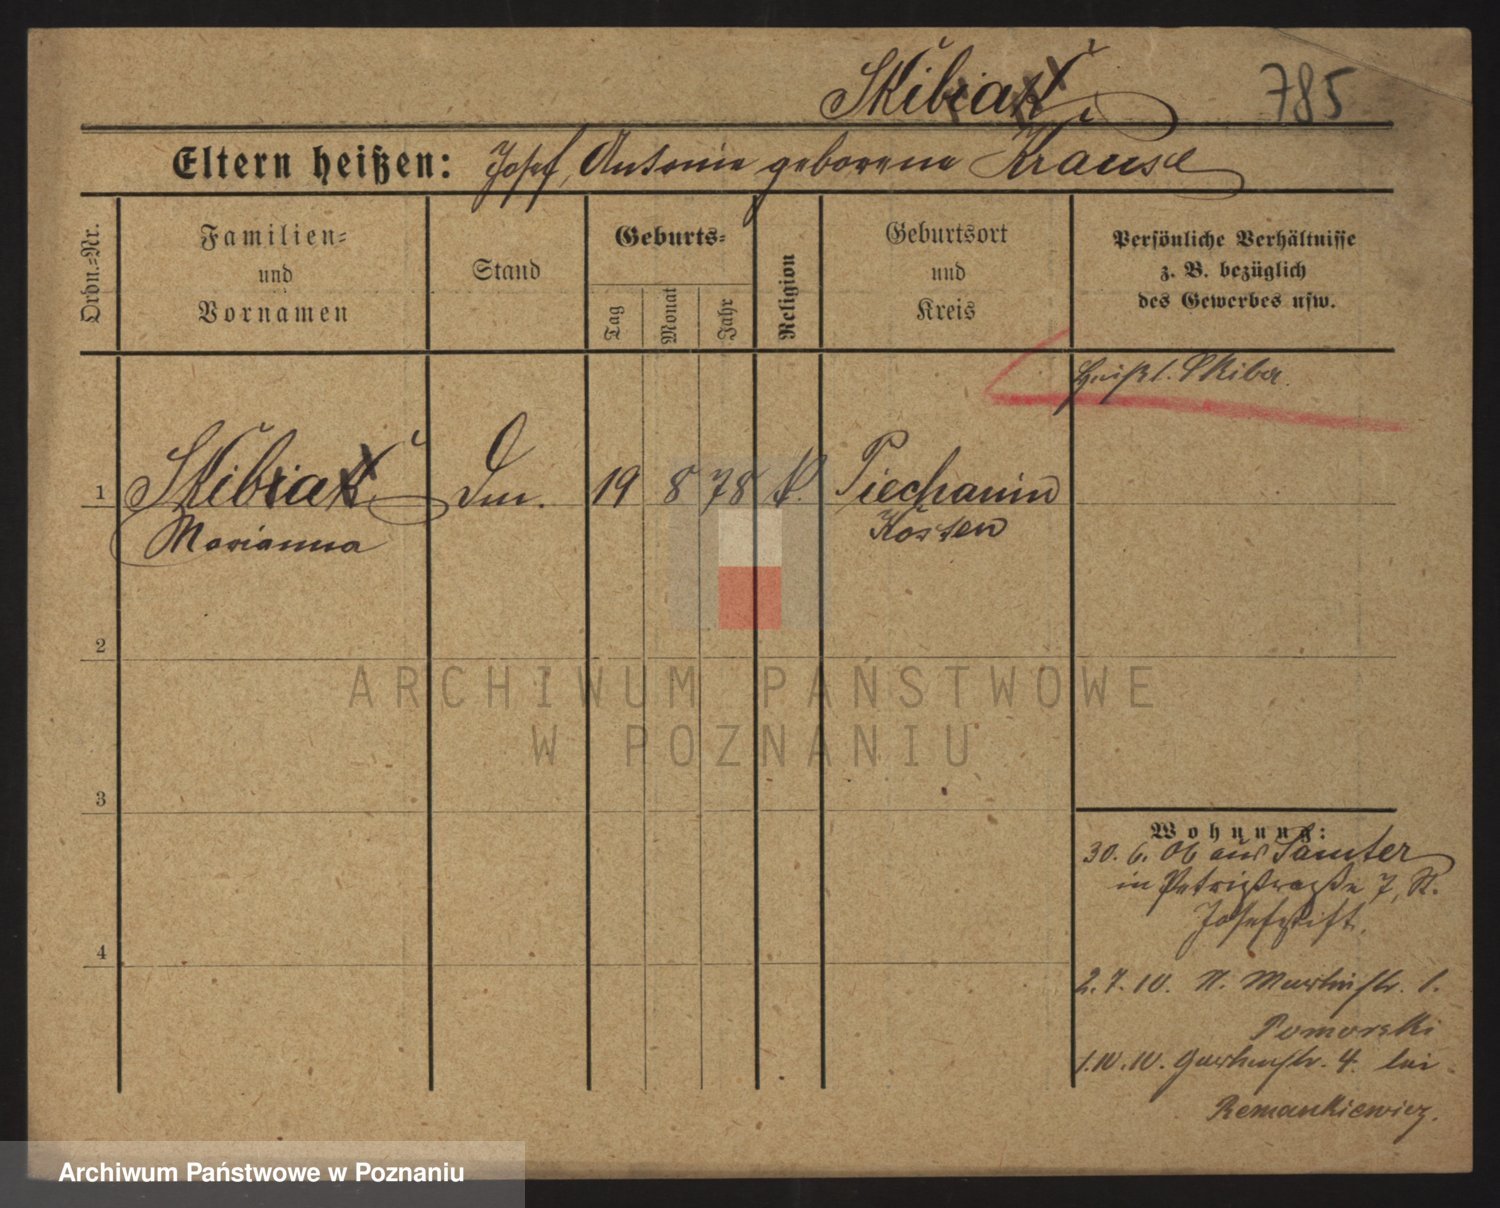 Skibiak
785
Eltern heißen: Josef, Antonie geborene Krause
Ordn.-Nr.
Familien-
und
Vornamen
Stand
Geburts-
Tag
Monat
Jahr
Religion
Geburtsort
und
Kreis
Persönliche Verhältnisse
z. B. bezüglich
des Gewerbes usw.
heißt. Skiba
1 Skibiak 19 8 78 k. Piechanin
Marianna Kosten
2
ARCHIWUM PAŃSTWOWE
W POZNANIU
3
Wohnung:
30. 6. 06 aus Samter
in Petristraße 7, St.
Josefstift.
4
2. 7. 10. St. Martinstr. 1.
Pomorski
1. 10. 10. Gartenstr. 4. bei
Remankiewicz.
Archiwum Państwowe w Poznaniu